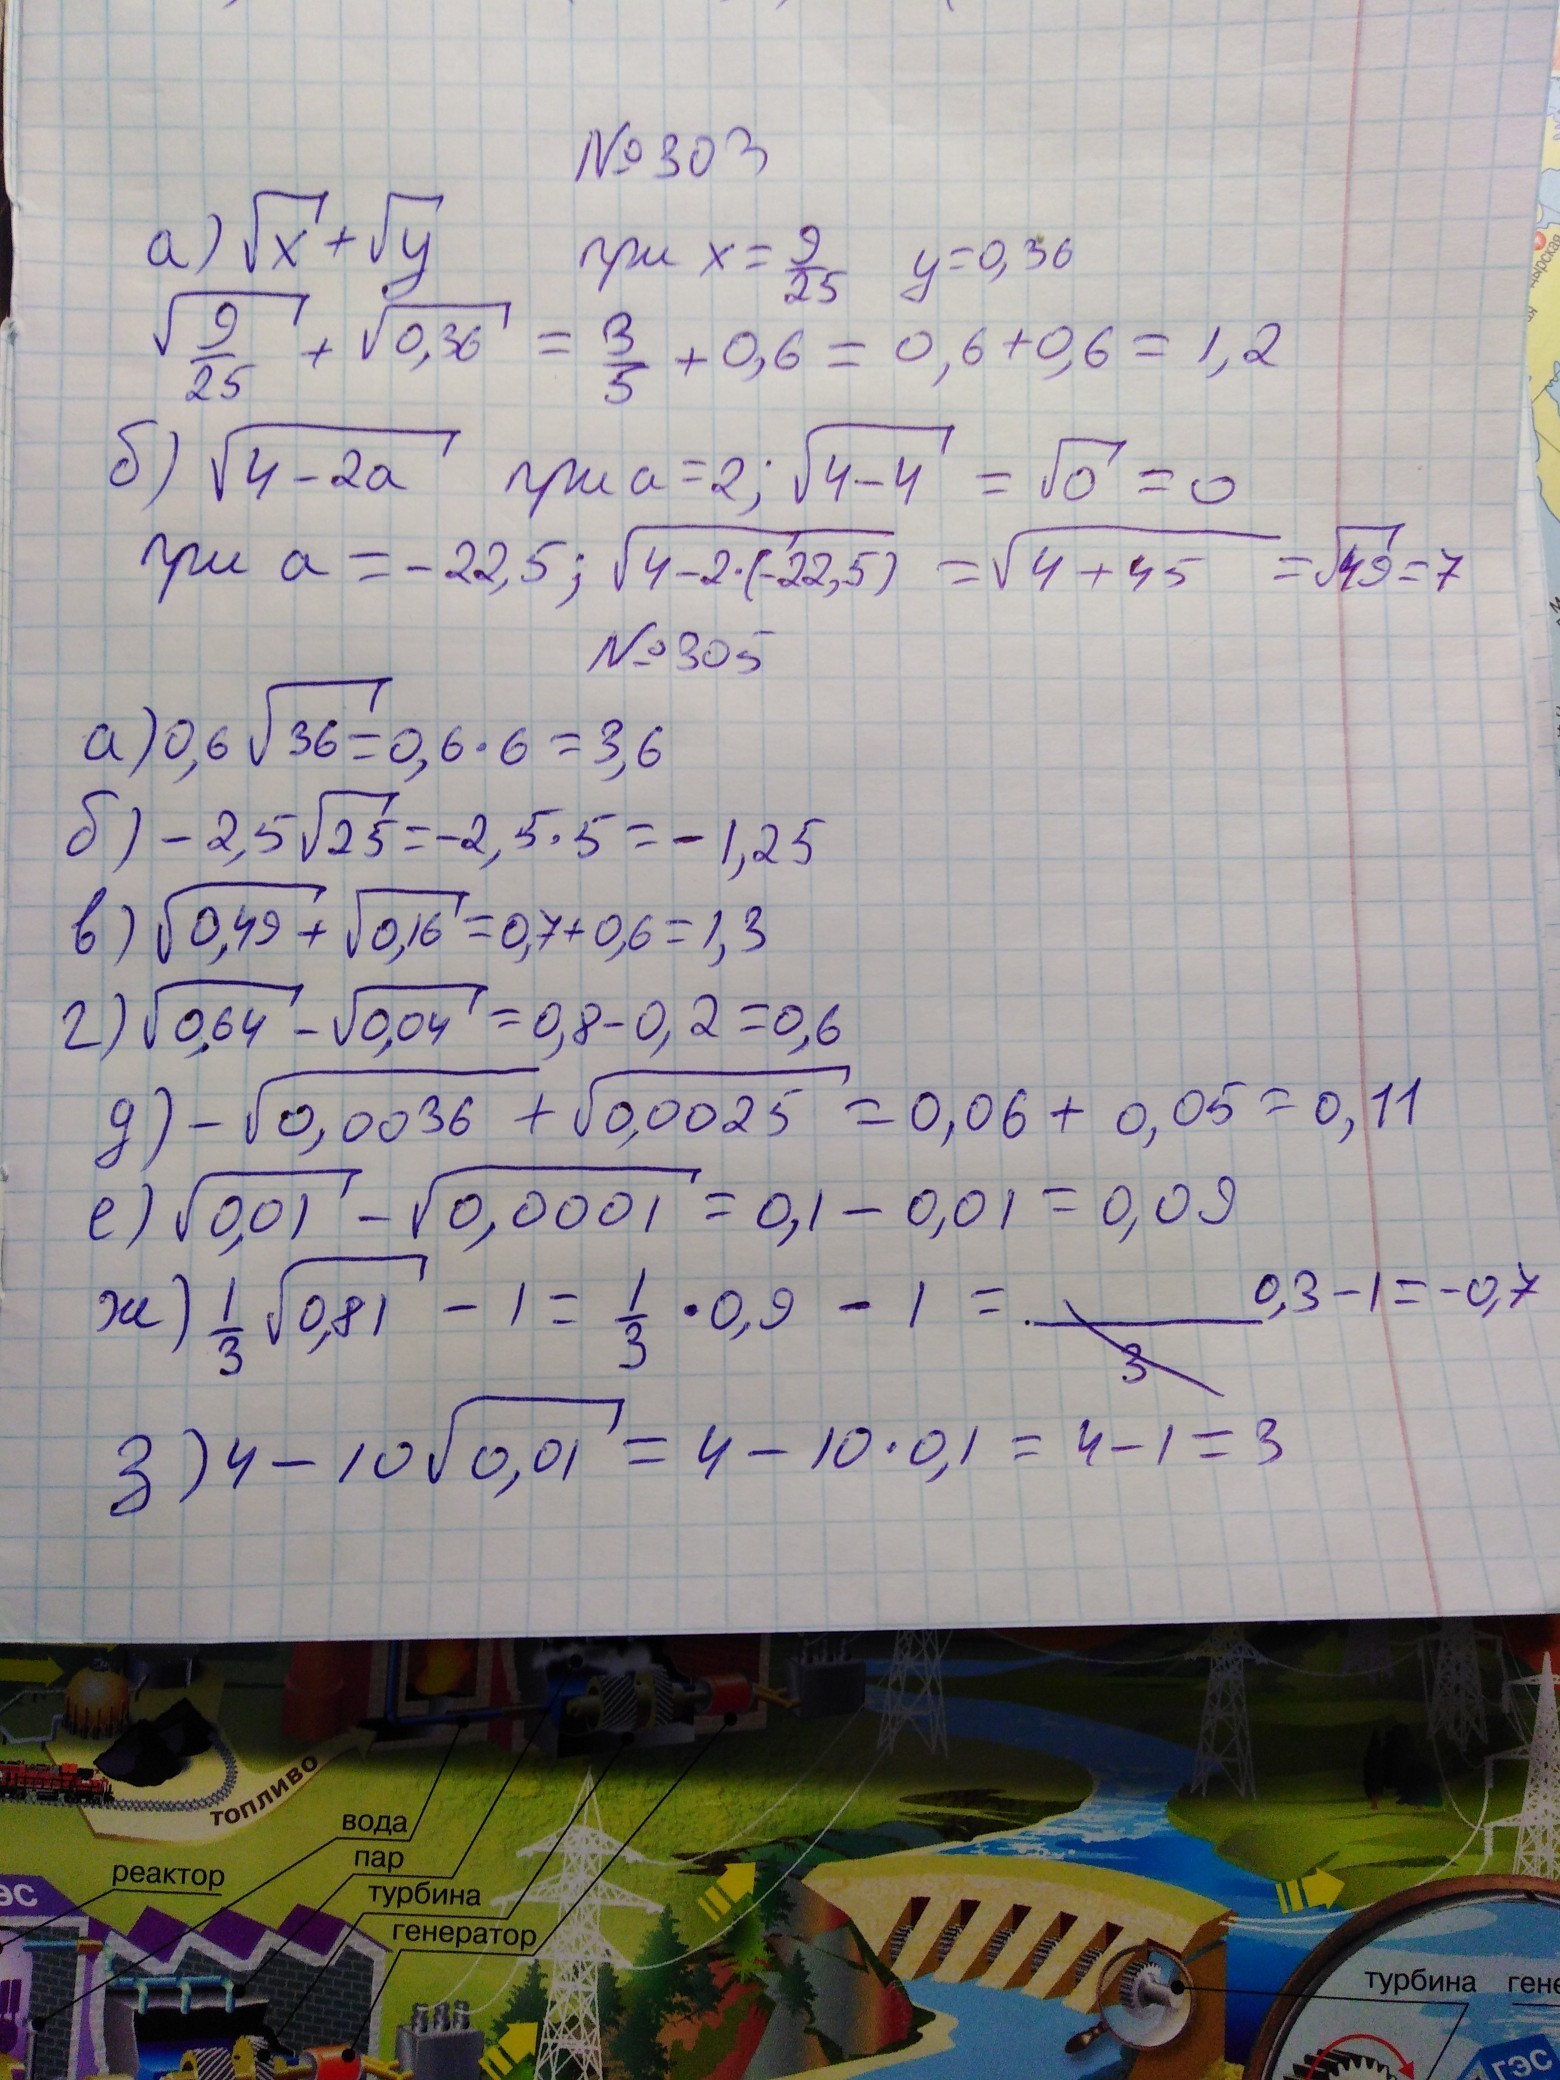 №303
а) √x + √y при x = 9/25 y = 0,36
√9/25 + √0,36 = 3/5 + 0,6 = 0,6 + 0,6 = 1,2
б) √4 - 2a при a = 2; √4 - 4 = √0 = 0
при a = -22,5; √4 - 2·(-22,5) = √4 + 45 = √49 = 7
№305
а) 0,6√36 = 0,6·6 = 3,6
б) -2,5√25 = -2,5·5 = -1,25
в) √0,49 + √0,16 = 0,7 + 0,6 = 1,3
г) √0,64 - √0,04 = 0,8 - 0,2 = 0,6
д) -√0,0036 + √0,0025 = 0,06 + 0,05 = 0,11
е) √0,01 - √0,0001 = 0,1 - 0,01 = 0,09
ж) 1/3 √0,81 - 1 = 1/3 · 0,9 - 1 = 0,3 - 1 = -0,7
3
з) 4 - 10√0,01 = 4 - 10·0,1 = 4 - 1 = 3
ТОПЛИВО
вода
пар
реактор
турбина
генератор
турбина
ГЭС